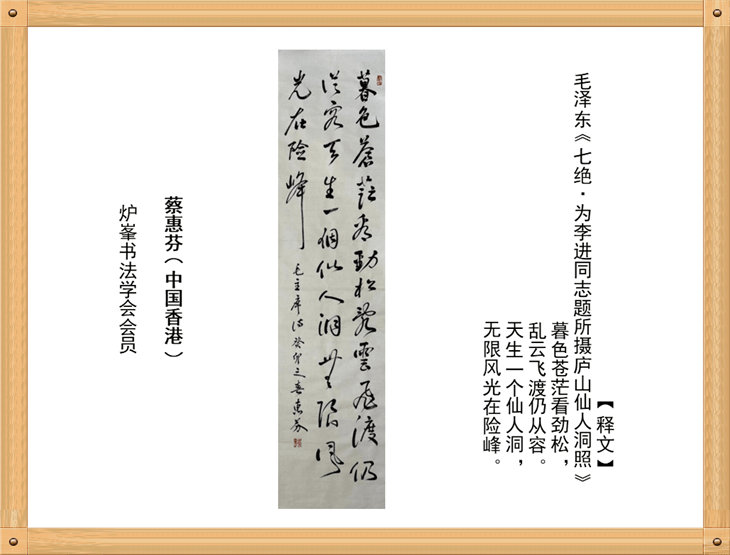 【释文】
毛泽东《七绝·为李进同志题所摄庐山仙人洞照》
暮色苍茫看劲松，
乱云飞渡仍从容。
天生一个仙人洞，
无限风光在险峰。
暮色蒼茫看勁松亂雲飛渡仍
從容天生一個仙人洞無限風
光在险峰
毛主席诗癸卯之春惠芬
蔡惠芬（中国香港）
炉峯书法学会会员